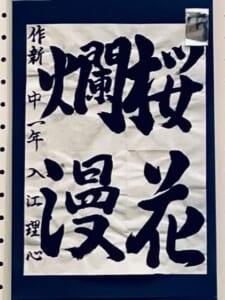 桜花
爛漫
作新 中一年 入江理心